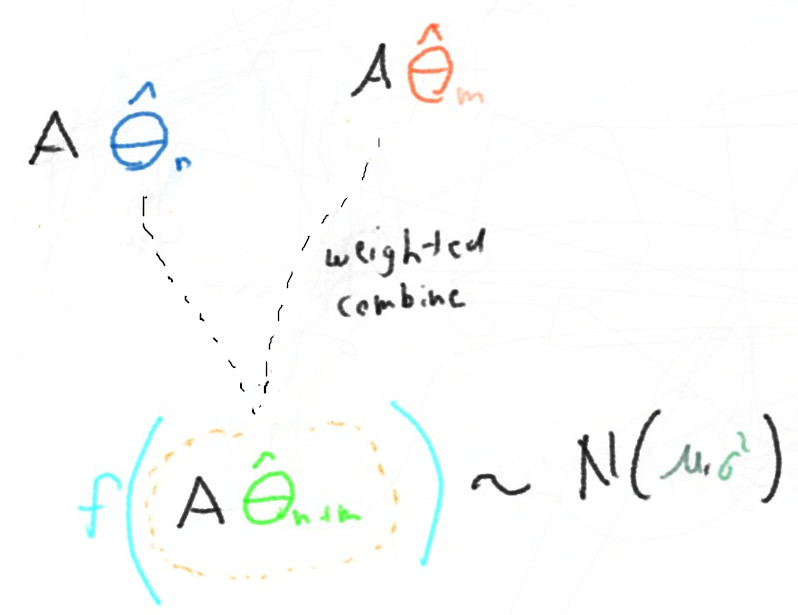 A θ̂ₘ
A θ̂ₙ
weighted
combine
f(A θ̂ₙ₊ₘ) ~ N(μ, σ²)